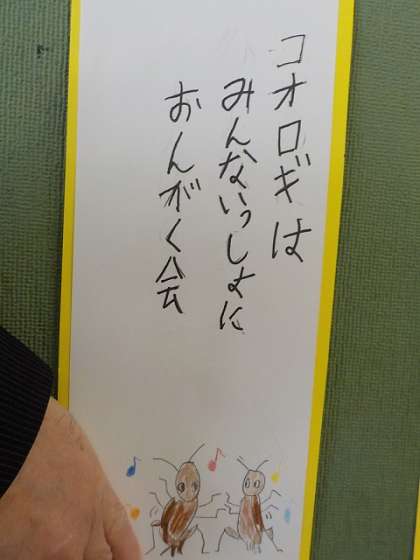 コオロギは
みんないっしょに
おんがく会